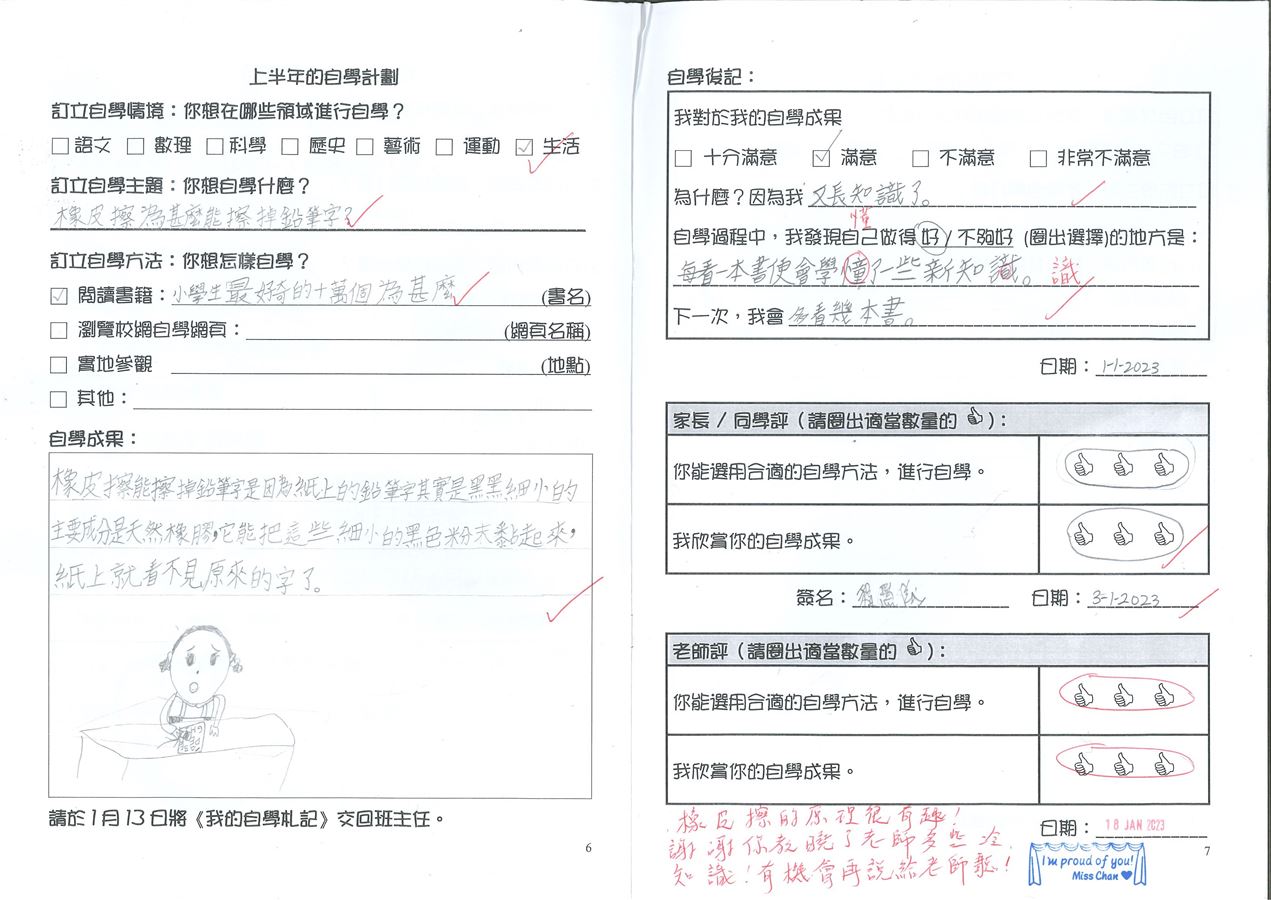 上半年的自學計劃
訂立自學情境：你想在哪些領域進行自學？
□語文 □數理 □科學 □歷史 □藝術 □運動 ☑生活
訂立自學主題：你想自學什麼？
橡皮擦為甚麼能擦掉鉛筆字？
訂立自學方法：你想怎樣自學？
☑ 閱讀書籍：小學生最好奇的十萬個為甚麼 (書名)
□ 瀏覽校網自學網頁： (網頁名稱)
□ 實地參觀 (地點)
□ 其他：
自學成果：
橡皮擦能擦掉鉛筆字是因為紙上的鉛筆字其實是黑黑細小的
主要成分是天然橡膠，它能把這些細小的黑色粉末黏起來，
紙上就看不見原來的字了。
請於1月13日將《我的自學札記》交回班主任。
6
自學後記：
我對於我的自學成果
□ 十分滿意 ☑ 滿意 □ 不滿意 □ 非常不滿意
為什麼？因為我 又長知識了。
懂
自學過程中，我發現自己做得好/不夠好 (圈出選擇)的地方是：
每看一本書便會學憧了一些新知識。 識
下一次，我會 多看幾本書。
日期：1-1-2023
家長 / 同學評（請圈出適當數量的 👍）：
你能選用合適的自學方法，進行自學。 👍 👍 👍
我欣賞你的自學成果。 👍 👍 👍
簽名： 日期：3-1-2023
老師評（請圈出適當數量的 👍）：
你能選用合適的自學方法，進行自學。 👍 👍 👍
我欣賞你的自學成果。 👍 👍 👍
日期：18 JAN 2023
橡皮擦的原理很有趣！
謝謝你教曉了老師多些冷
知識！有機會再說給老師聽！
I'm proud of you!
Miss Chan ♥
7